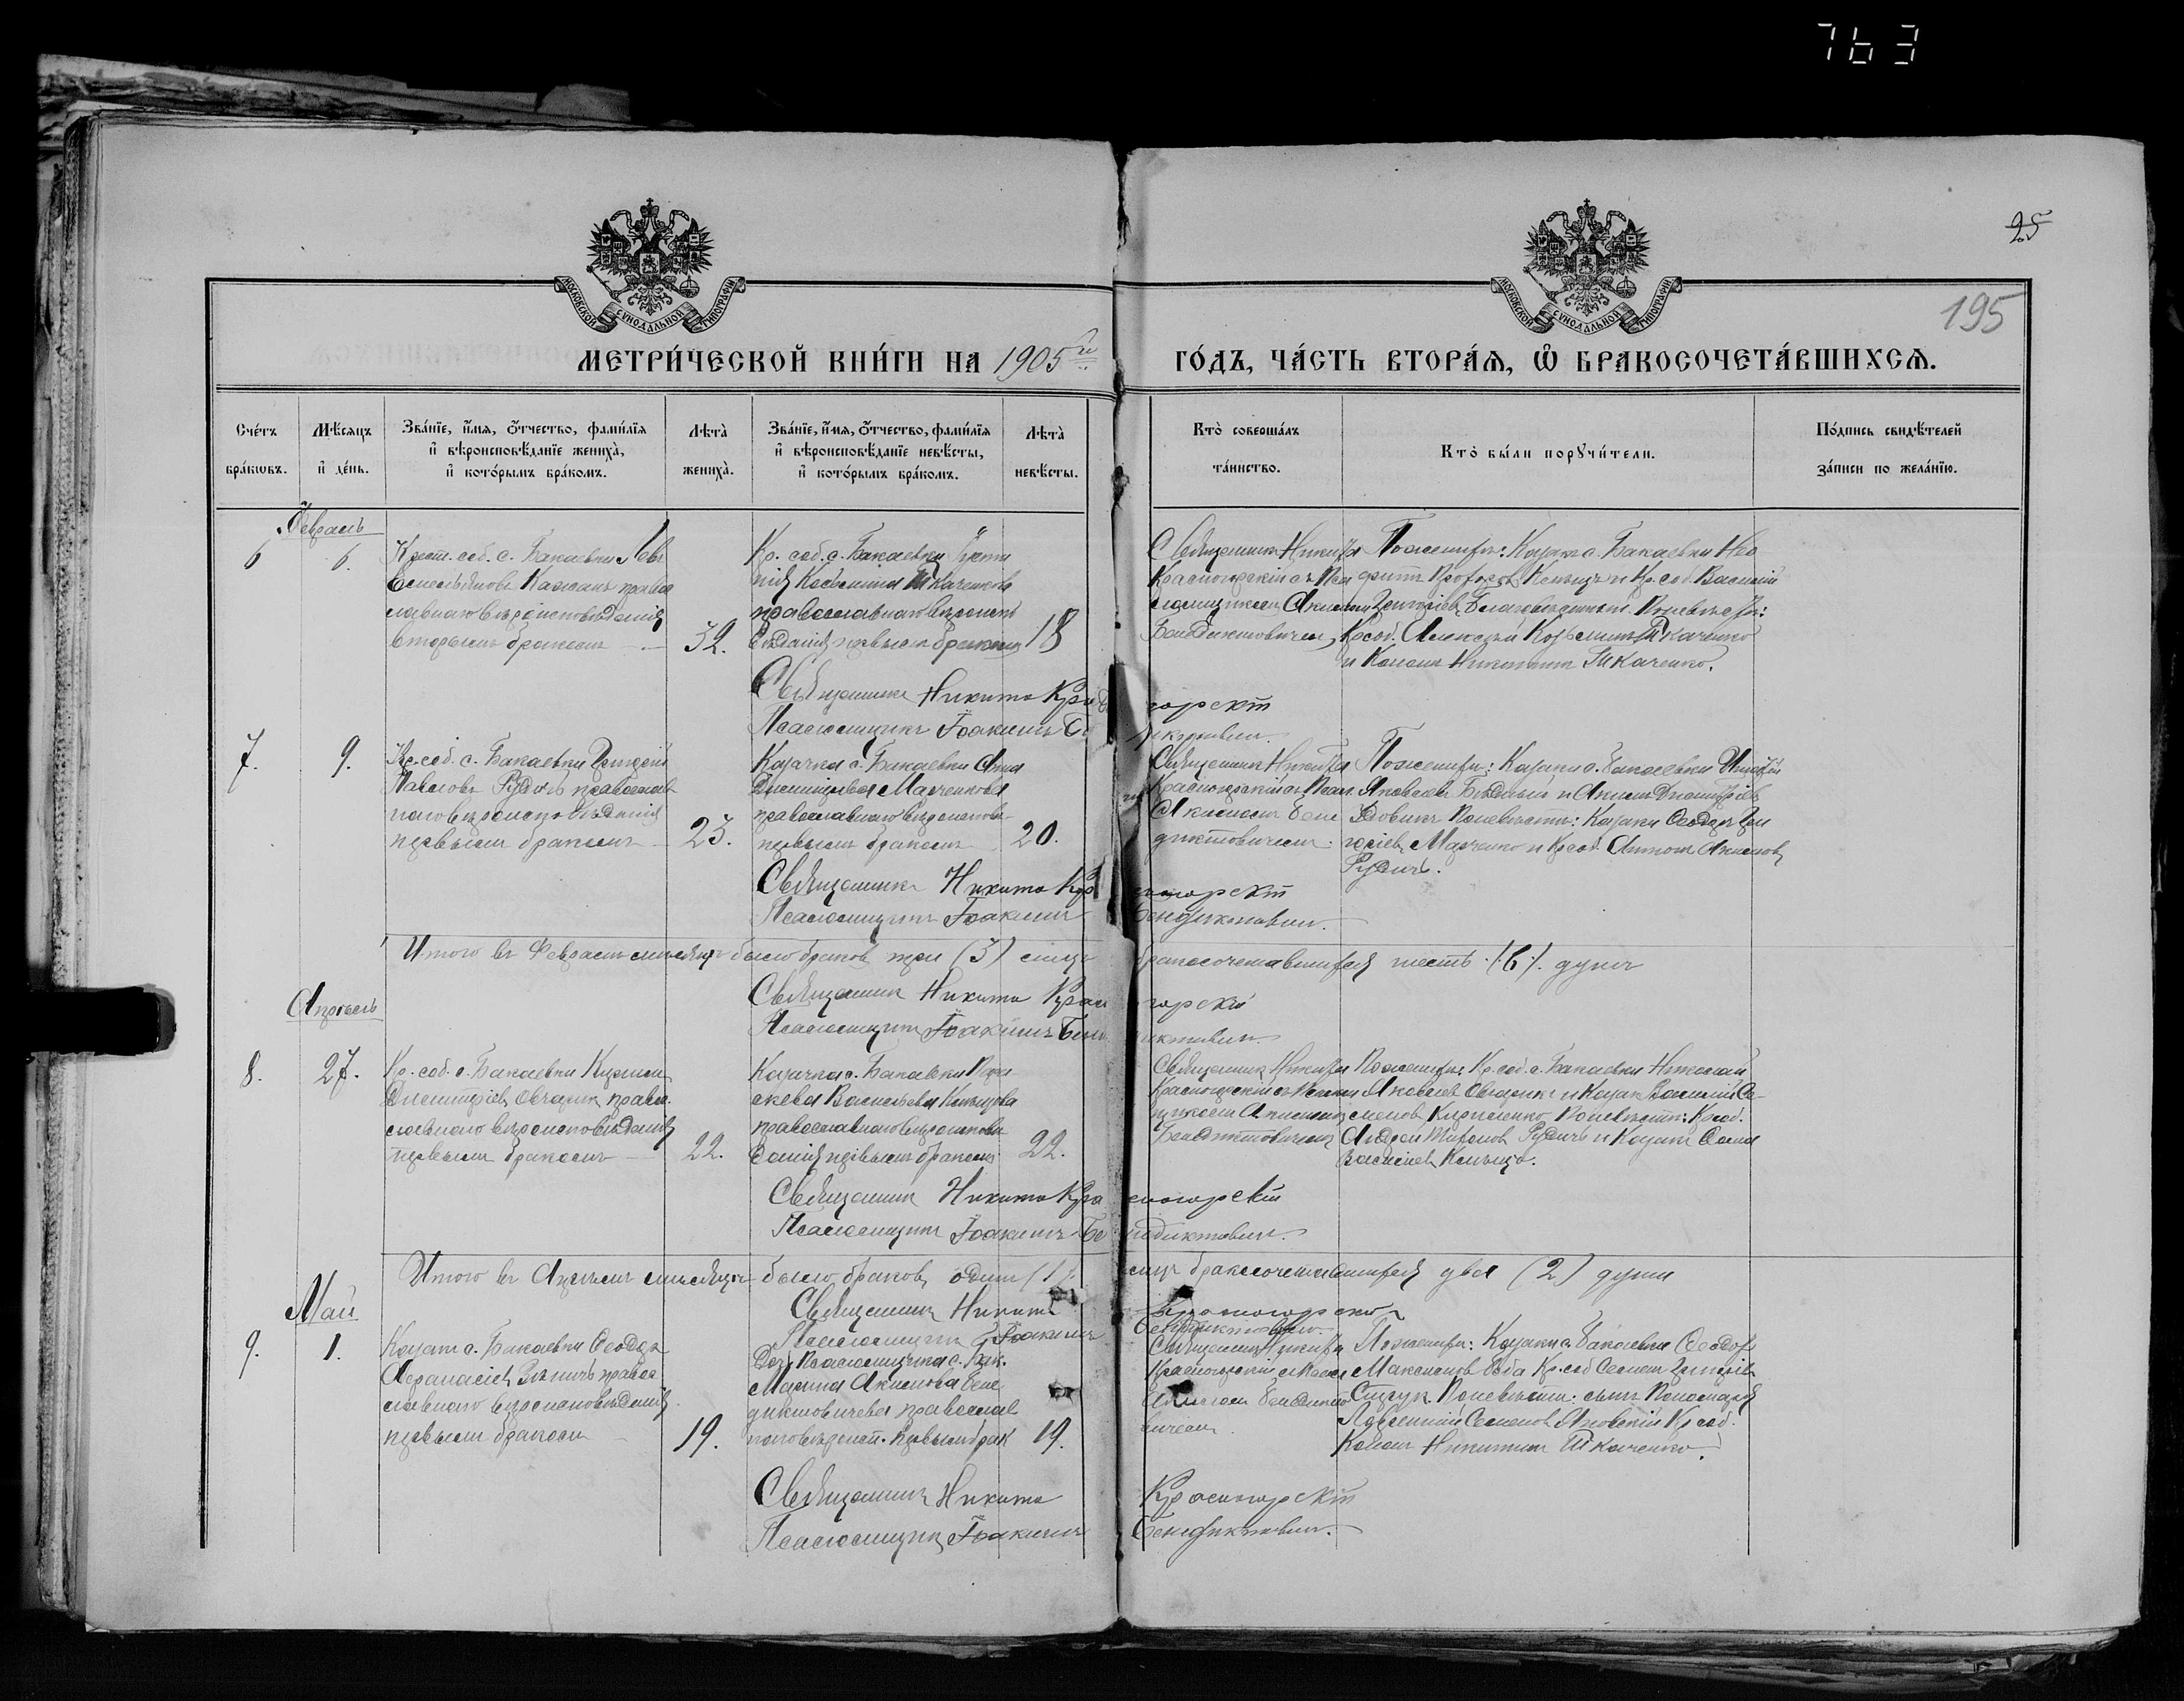 763
25
195
МОСКОВСКОЙ СУНОДАЛЬНОЙ ТИПОГРАФІИ
МОСКОВСКОЙ СУНОДАЛЬНОЙ ТИПОГРАФІИ
МЕТРИ́ЧЕСКОЙ КНИ́ГИ НА 1905й ГО́ДЪ, ЧА́СТЬ ВТОРА́Я, Ѡ БРАКОСОЧЕТА́ВШИХСѦ.
Сче́тъ бра́кѡвъ.
Мѣ́сѧцъ и҆ де́нь.
Зва́нїе, и҆́мѧ, ѻ҆́тчество, фами́лїѧ
и҆ вѣроисповѣ́данїе жениха̀,
и҆ кото́рымъ бра́комъ.
Лѣта̀ жениха̀.
Зва́нїе, и҆́мѧ, ѻ҆́тчество, фами́лїѧ
и҆ вѣроисповѣ́данїе невѣ́сты,
и҆ кото́рымъ бра́комъ.
Лѣта̀ невѣ́сты.
Кто̀ соверша́лъ та́инство.
Кто̀ бы́ли порꙋчи́тели.
По́дпись свидѣ́телей за́писи по жела́нїю.
Февраль
6
6.
Крест. соб. с. Бакаевки Левъ
Емельяновъ Кажанъ право
славнаго вѣроисповѣданія
вторымъ бракомъ
32.
Кр. соб. с. Бакаевки
Косьмина Ткаченкова
православнаго вѣроиспо
вѣданія первымъ бракомъ
18
Священникъ Никита
Красногорскій съ Пса
ломщикомъ Акимомъ
Бендиктовичемъ
По женихѣ: Казакъ с. Бакаевки Нео
фитъ Кольцъ и Кр. соб. Василій
По невѣстѣ:
Кр. соб. Алексѣй Козьминъ Ткаченко
и Кононъ Никитинъ Ткаченко.
Священникъ Никита Красногорскій
Псаломщикъ Іоакимъ Бендиктовичъ.
7.
9.
Кр. соб. с. Бакаевки Григорій
Павловъ Рудичъ православ
наго вѣроисповѣданія
первымъ бракомъ
23.
Казачка с. Бакаевки Анна
Димитріева Марченкова
православнаго вѣроисповѣ.
первымъ бракомъ
20.
Священникъ Никита
Красногорскій съ Псал.
Акимомъ Бен
диктовичемъ.
По женихѣ: Казаки с. Бакаевки
Яковлевъ Бѣдный и Акимъ Димитріевъ
Вдовикъ По невѣстѣ: Казаки Ѳеодоръ Гри
горіевъ Марченко и Кр. соб. Антонъ Акимовъ
Рудичъ.
Священникъ Никита Красногорскій
Псаломщикъ Іоакимъ Бендиктовичъ.
Итого въ Февралѣ мѣсяцѣ было браковъ три (3) лицъ бракосочетавшихся шесть (6) душъ
Священникъ Никита Красногорскій
Псаломщикъ Іоакимъ Бендиктовичъ
Апрѣль
8.
27.
Кр. соб. с. Бакаевки
Димитріевъ Овчарикъ право
славнаго вѣроисповѣданія
первымъ бракомъ
22.
Казачка с. Бакаевки Пара
скева Васильева Кольцова
православнаго вѣроисповѣ
данія первымъ бракомъ
22.
Священникъ Никита
Красногорскій съ Псалом
щикомъ Акимомъ
Бендиктовичемъ
По женихѣ: Кр. соб. с. Бакаевки Николай
Яковлевъ Овчарикъ и Казакъ Василій Се-
меновъ Кириленко По невѣстѣ: Кр. соб.
Андрей Тихоновъ Рудичъ и Казакъ
Василіевъ Кольцъ.
Священникъ Никита Красногорскій
Псаломщикъ Іоакимъ Бендиктовичъ.
Итого въ Апрѣлѣ мѣсяцѣ было браковъ одинъ (1) лицъ бракосочетавшихся два (2) души
Священникъ Никита Красногорскій
Псаломщикъ Іоакимъ Бендиктовичъ.
Май
9.
1.
Казакъ с. Бакаевки Ѳеодоръ
Аѳанасіевъ право
славнаго вѣроисповѣданія
первымъ бракомъ
19.
Дочь Псаломщика с. Бак.
Марина Акимова Бен
диктовичева православ
наго вѣроисп. первымъ брак
19.
Священникъ Никита
Красногорскій съ Псал
Бендикто
вичемъ
По женихѣ: Казаки с. Бакаевки Ѳеодоръ
Максимовъ Кр. соб. Семенъ Григоріев
По невѣстѣ: сынъ Пономаря
Лаврентій Семеновъ Яновскій Кр. соб.
Кононъ Никитинъ Ткаченко.
Священникъ Никита Красногорскій
Псаломщикъ Іоакимъ Бендиктовичъ.